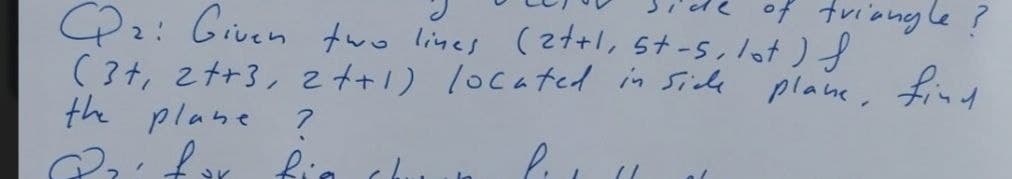 side of triangle ?
Q2: Given two lines (2t+1, 5t-5, 10t) &
(3t, 2t+3, 2t+1) located in side plane, find
the plane ?
for fig